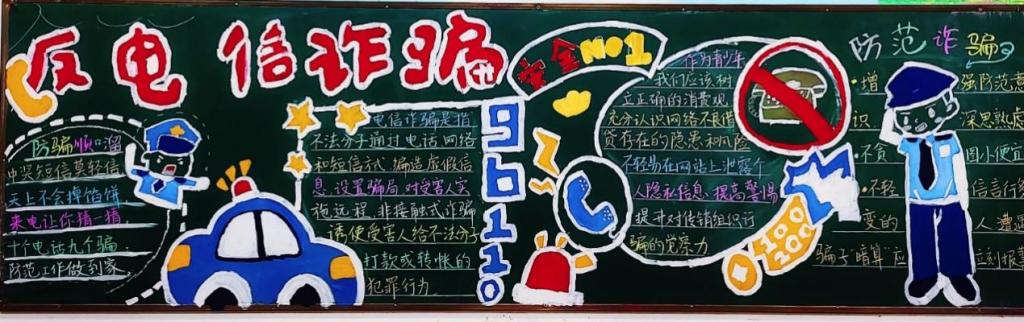 反电信诈骗
安全NO1
防骗顺口溜
中奖短信莫轻信
天上不会掉馅饼
来电让你猜一猜
十个电话九个骗
防范工作做到家
电信诈骗是指
不法分子通过电话、网络
和短信方式,编造虚假信
息,设置骗局,对受害人实
施远程、非接触式诈骗
诱使受害人给不法分子
打款或转帐的
犯罪行为
96110
作为青少年
我们应该树
立正确的消费观
充分认识网络不良借
贷存在的隐患和风险
不轻易在网站上泄露个
人隐私信息,提高警惕
提升对传销组织诈
骗的觉察力
100
200
防范诈骗
·增 强防范意
识 深思熟虑
·不贪 图小便宜
·不轻 信言行
变的 人 遭遇
骗子"暗算"应 立刻报警